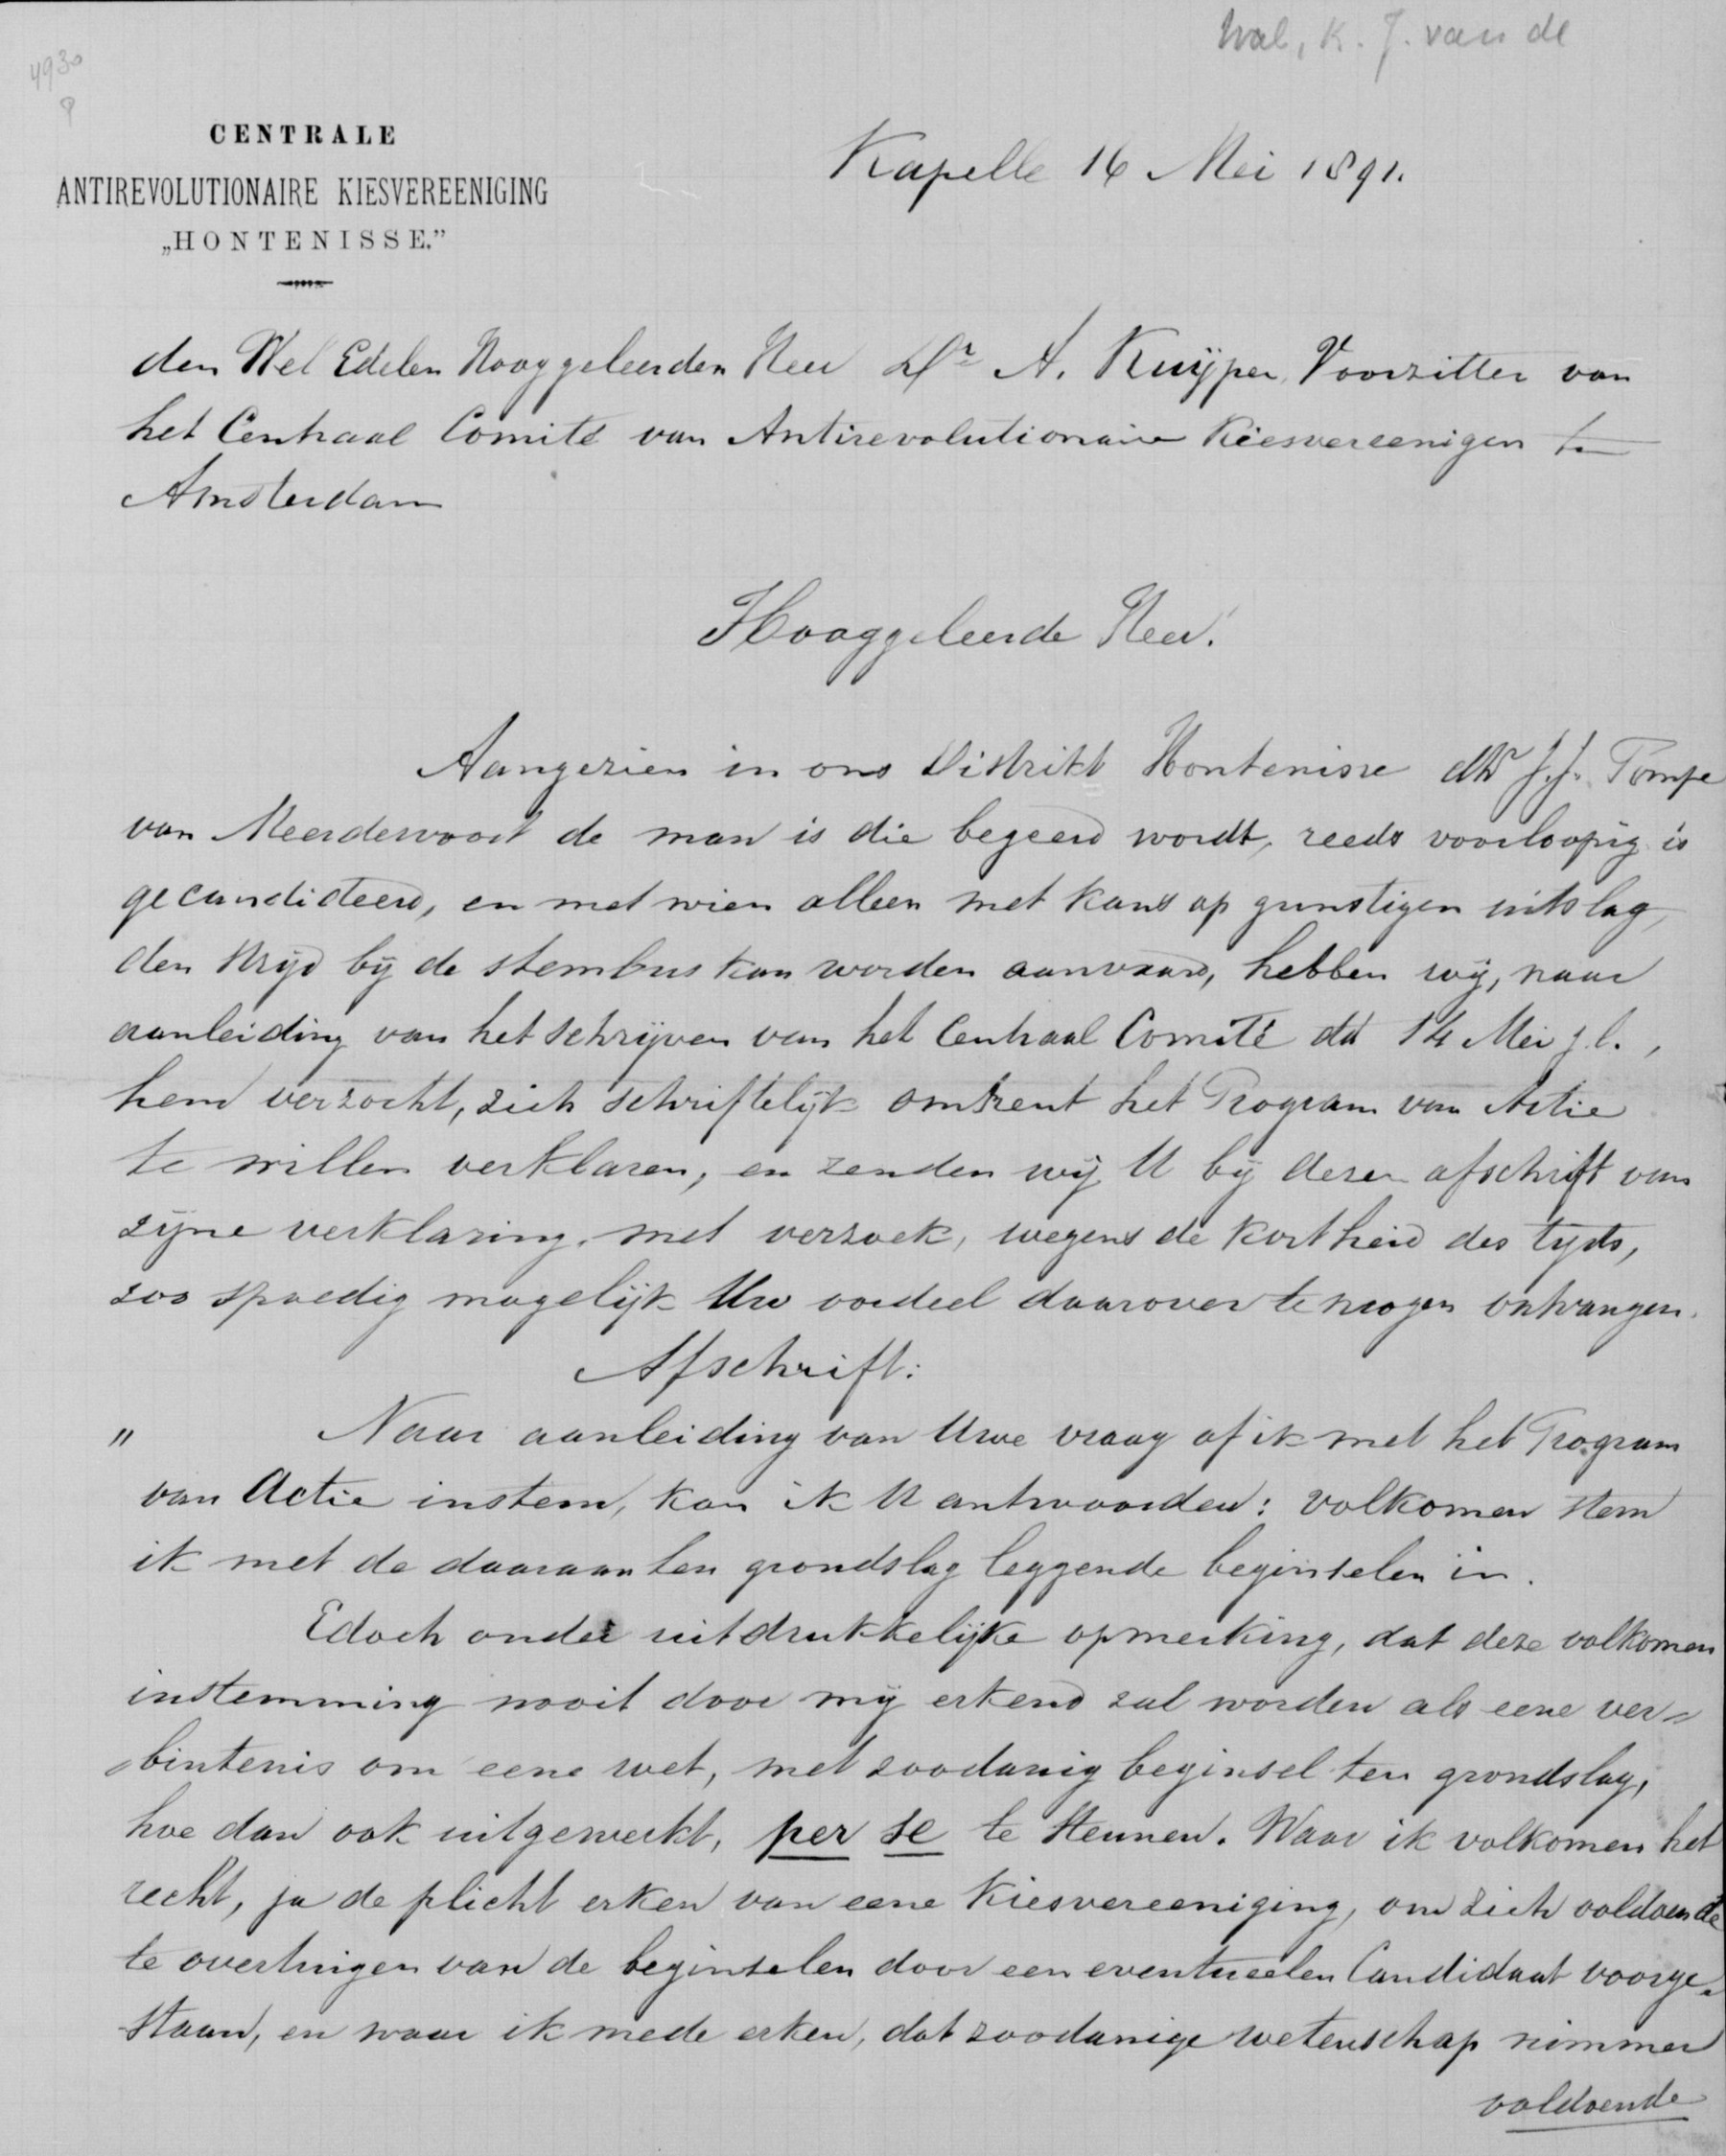 Wal, K. J. van de
4930
CENTRALE
ANTIREVOLUTIONAIRE KIESVEREENIGING
„HONTENISSE.”
Kapelle 16 Mei 1891.
den Wel Edelen Hooggeleerden Heer Dr A. Kuÿper, Voorzitter van
het Centraal Comité van Antirevolutionaire Kiesvereenigen te
Amsterdam
Hooggeleerde Heer!
Aangezien in ons Distrikt Hontenisse J.J. Pompe
van Meerdervoort de man is die begeerd wordt, reeds voorloopig is
gecandideerd, en met wien alleen met kans op gunstigen uitslag,
den strijd bij de stembus kan worden aanvaard, hebben wij, naar
aanleiding van het schrijven van het Centraal Comité dd 14 Mei j.l.,
hem verzocht, zich schriftelijk omtrent het Program van Actie
te willen verklaren, en zenden wij U bij dezen afschrift van
zijne verklaring, met verzoek, wegens de kortheid des tijds,
zoo spoedig mogelijk Uw oordeel daarover te mogen ontvangen.
Afschrift:
" Naar aanleiding van Uwe vraag of ik met het Program
van Actie instem, kan ik U antwoorden: volkomen stem
ik met de daaraan ten grondslag leggende beginselen in.
Edoch onder uitdrukkelijke opmerking, dat deze volkomen
instemming nooit door mij erkend zal worden als eene ver=
=bintenis om eene wet, met zoodanig beginsel ten grondslag,
hoe dan ook uitgewerkt, per se te steunen. Waar ik volkomen het
recht, ja de plicht erken van eene Kiesvereeniging, om zich voldoende
te overtuigen van de beginselen door een eventueelen Candidaat voorge=
staan, en waar ik mede erken, dat zoodanige wetenschap nimmer
voldoende